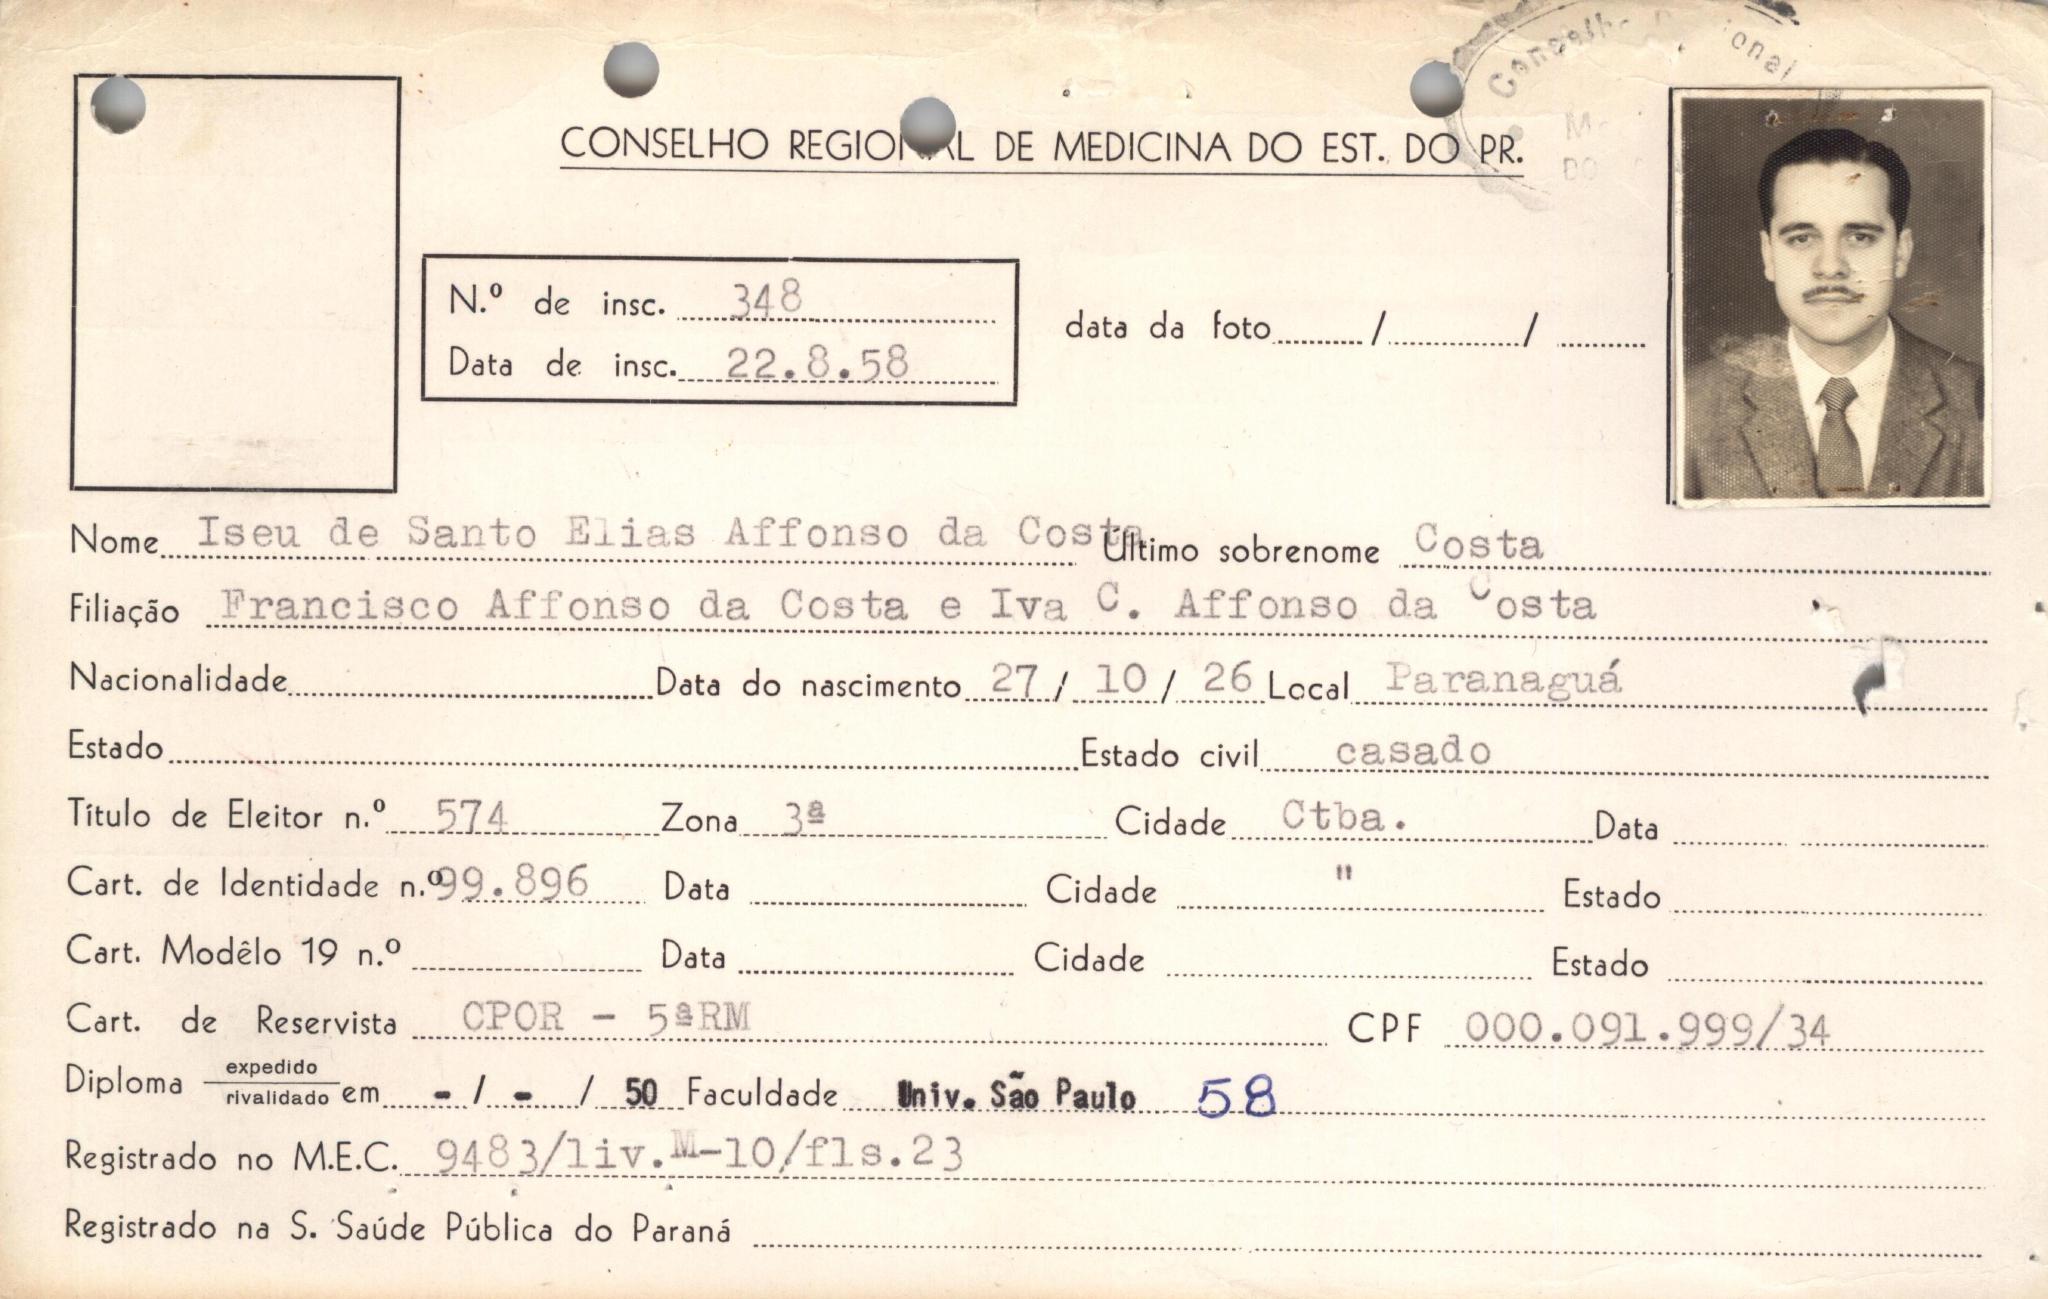 Conselho Regional
CONSELHO REGIONAL DE MEDICINA DO EST. DO PR.
N.º de insc. 348
Data de insc. 22.8.58
data da foto / /
Nome Iseu de Santo Elias Affonso da Costa Último sobrenome Costa
Filiação Francisco Affonso da Costa e Iva C. Affonso da Costa
Nacionalidade Data do nascimento 27 / 10 / 26 Local Paranaguá
Estado Estado civil casado
Título de Eleitor n.º 574 Zona 3ª Cidade Ctba. Data
Cart. de Identidade n.º 99.896 Data Cidade " Estado
Cart. Modêlo 19 n.º Data Cidade Estado
Cart. de Reservista CPOR - 5ªRM CPF 000.091.999/34
Diploma expedido/rivalidado em - / - / 50 Faculdade Univ. São Paulo 58
Registrado no M.E.C. 9483/liv.M-10/fls.23
Registrado na S. Saúde Pública do Paraná